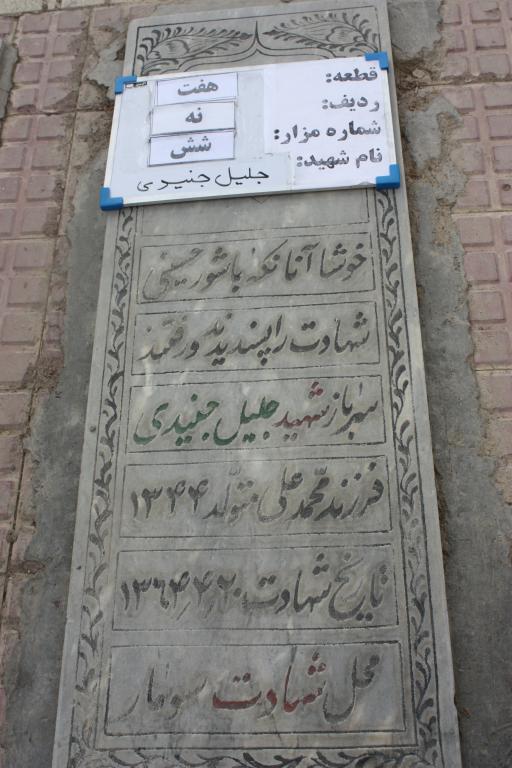 قطعه: هفت
ردیف: نه
شماره مزار: شش
نام شهید: جلیل جنیدی
خوشا آنانکه با شور حسینی
شهادت را پسندیدند و رفتند
سرباز شهید جلیل جنیدی
فرزند محمد علی متولد ۱۳۴۴
تاریخ شهادت ۱۳۶۴٫۴٫۲۰
محل شهادت سومار